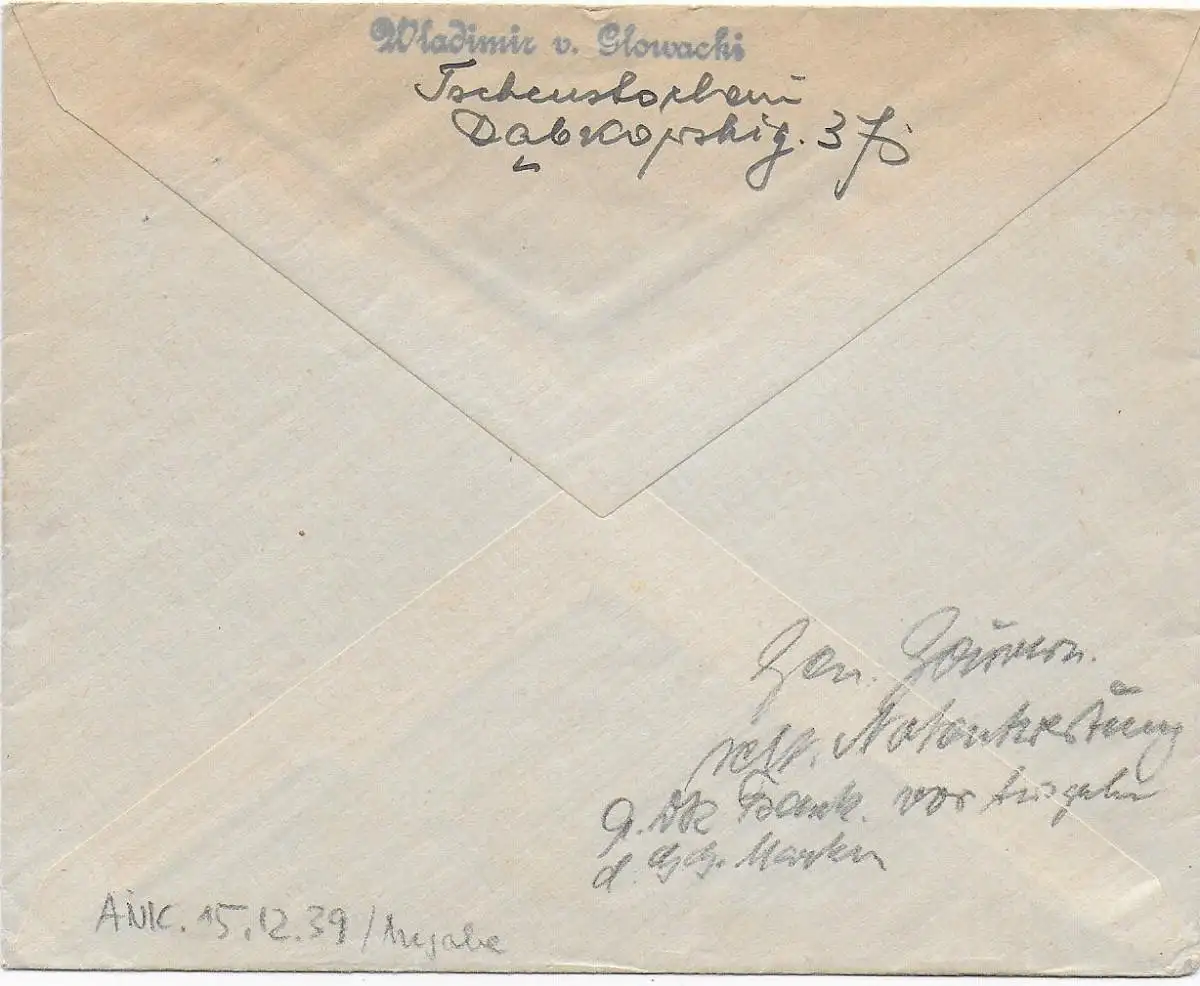 Wladimir v. Glowacki
Tschenstochau
Dąbkowskig. 37
Gen. Gouvern.
Notentwertung
Frank. vor Ausgabe
d. GG. Marken
ANK. 15.12.39 / Angabe